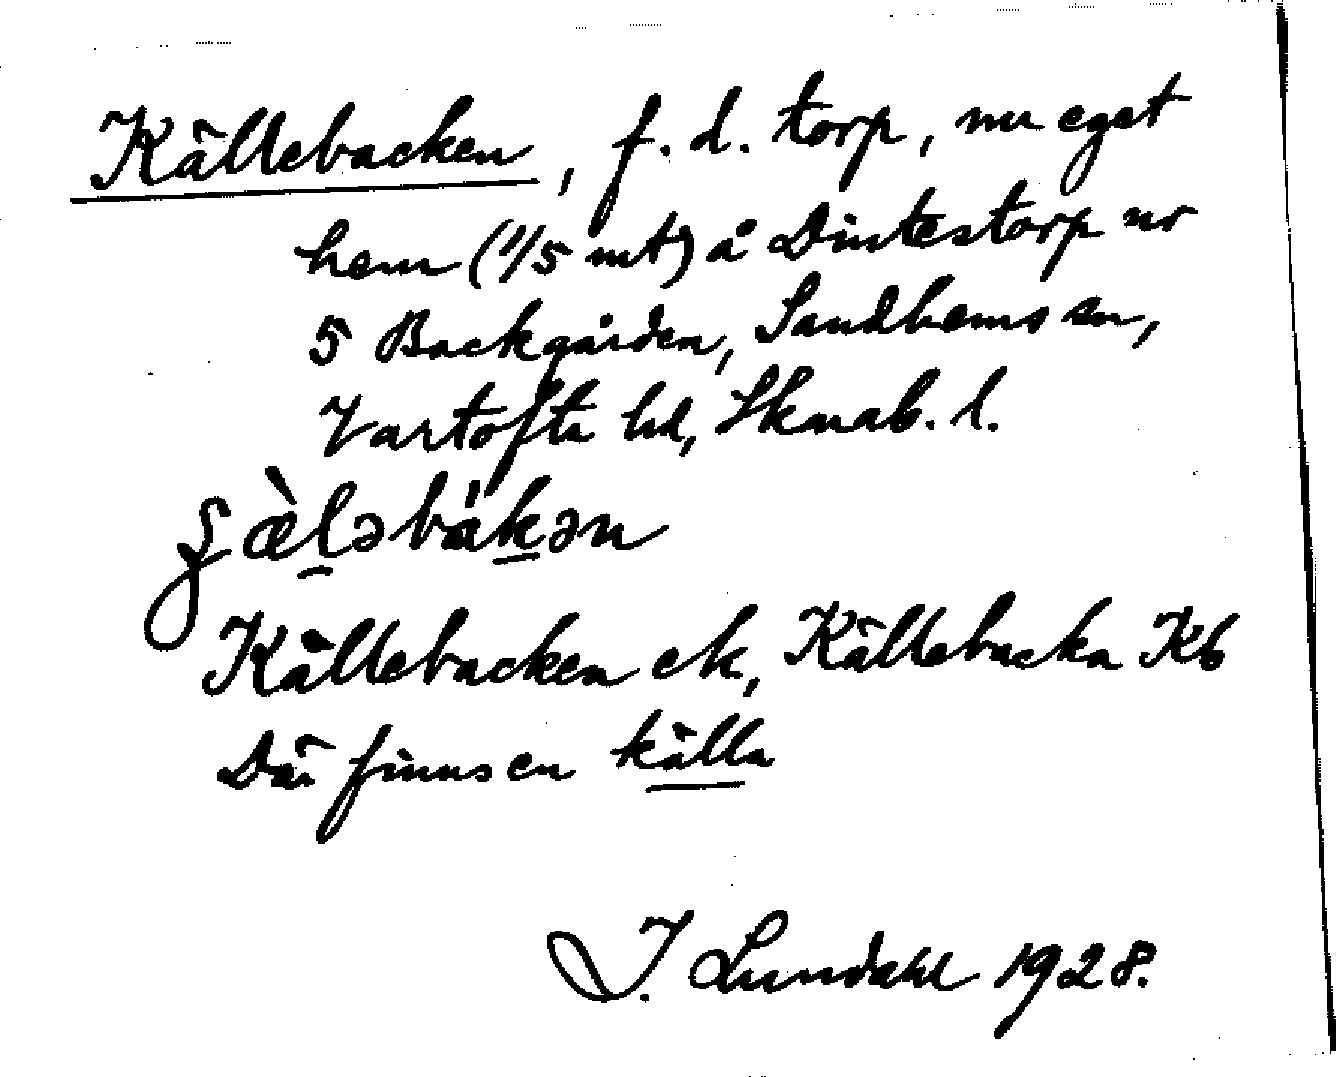 Källebacken, f. d. torp, nu eget
hem (1/5 mt) å Dintestorp nr
5 Backgården, Sandhems sn,
Vartofta hd, Skarab. l.
Källebacken ek, Källebacka Kb
Där finns en källa
I. Lundahl 1928.